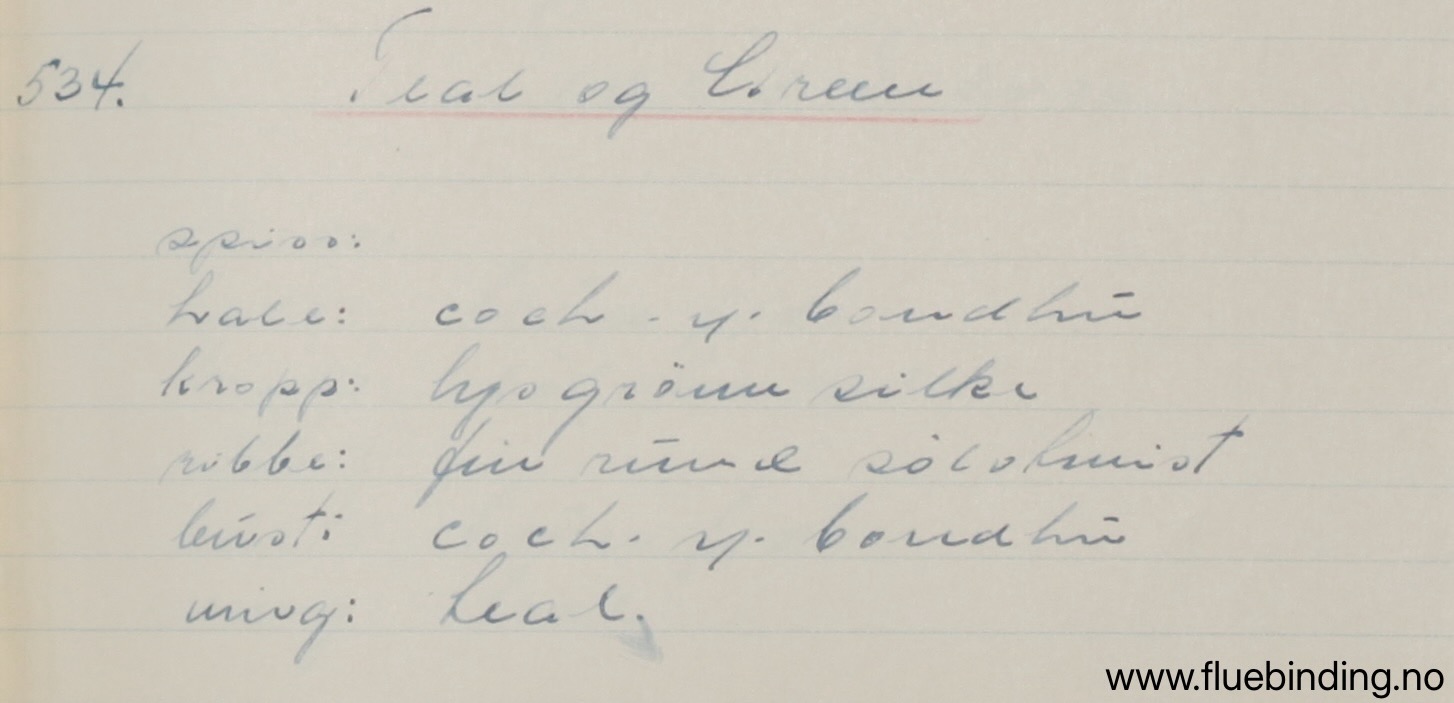 534. Teal og Green
spiss:
hale: coch. y. bondhū
kropp: lysgrönn silke
ribbe: fin rūnd sölvtvist
būst: coch. y. bondhū
ving: teal.
www.fluebinding.no